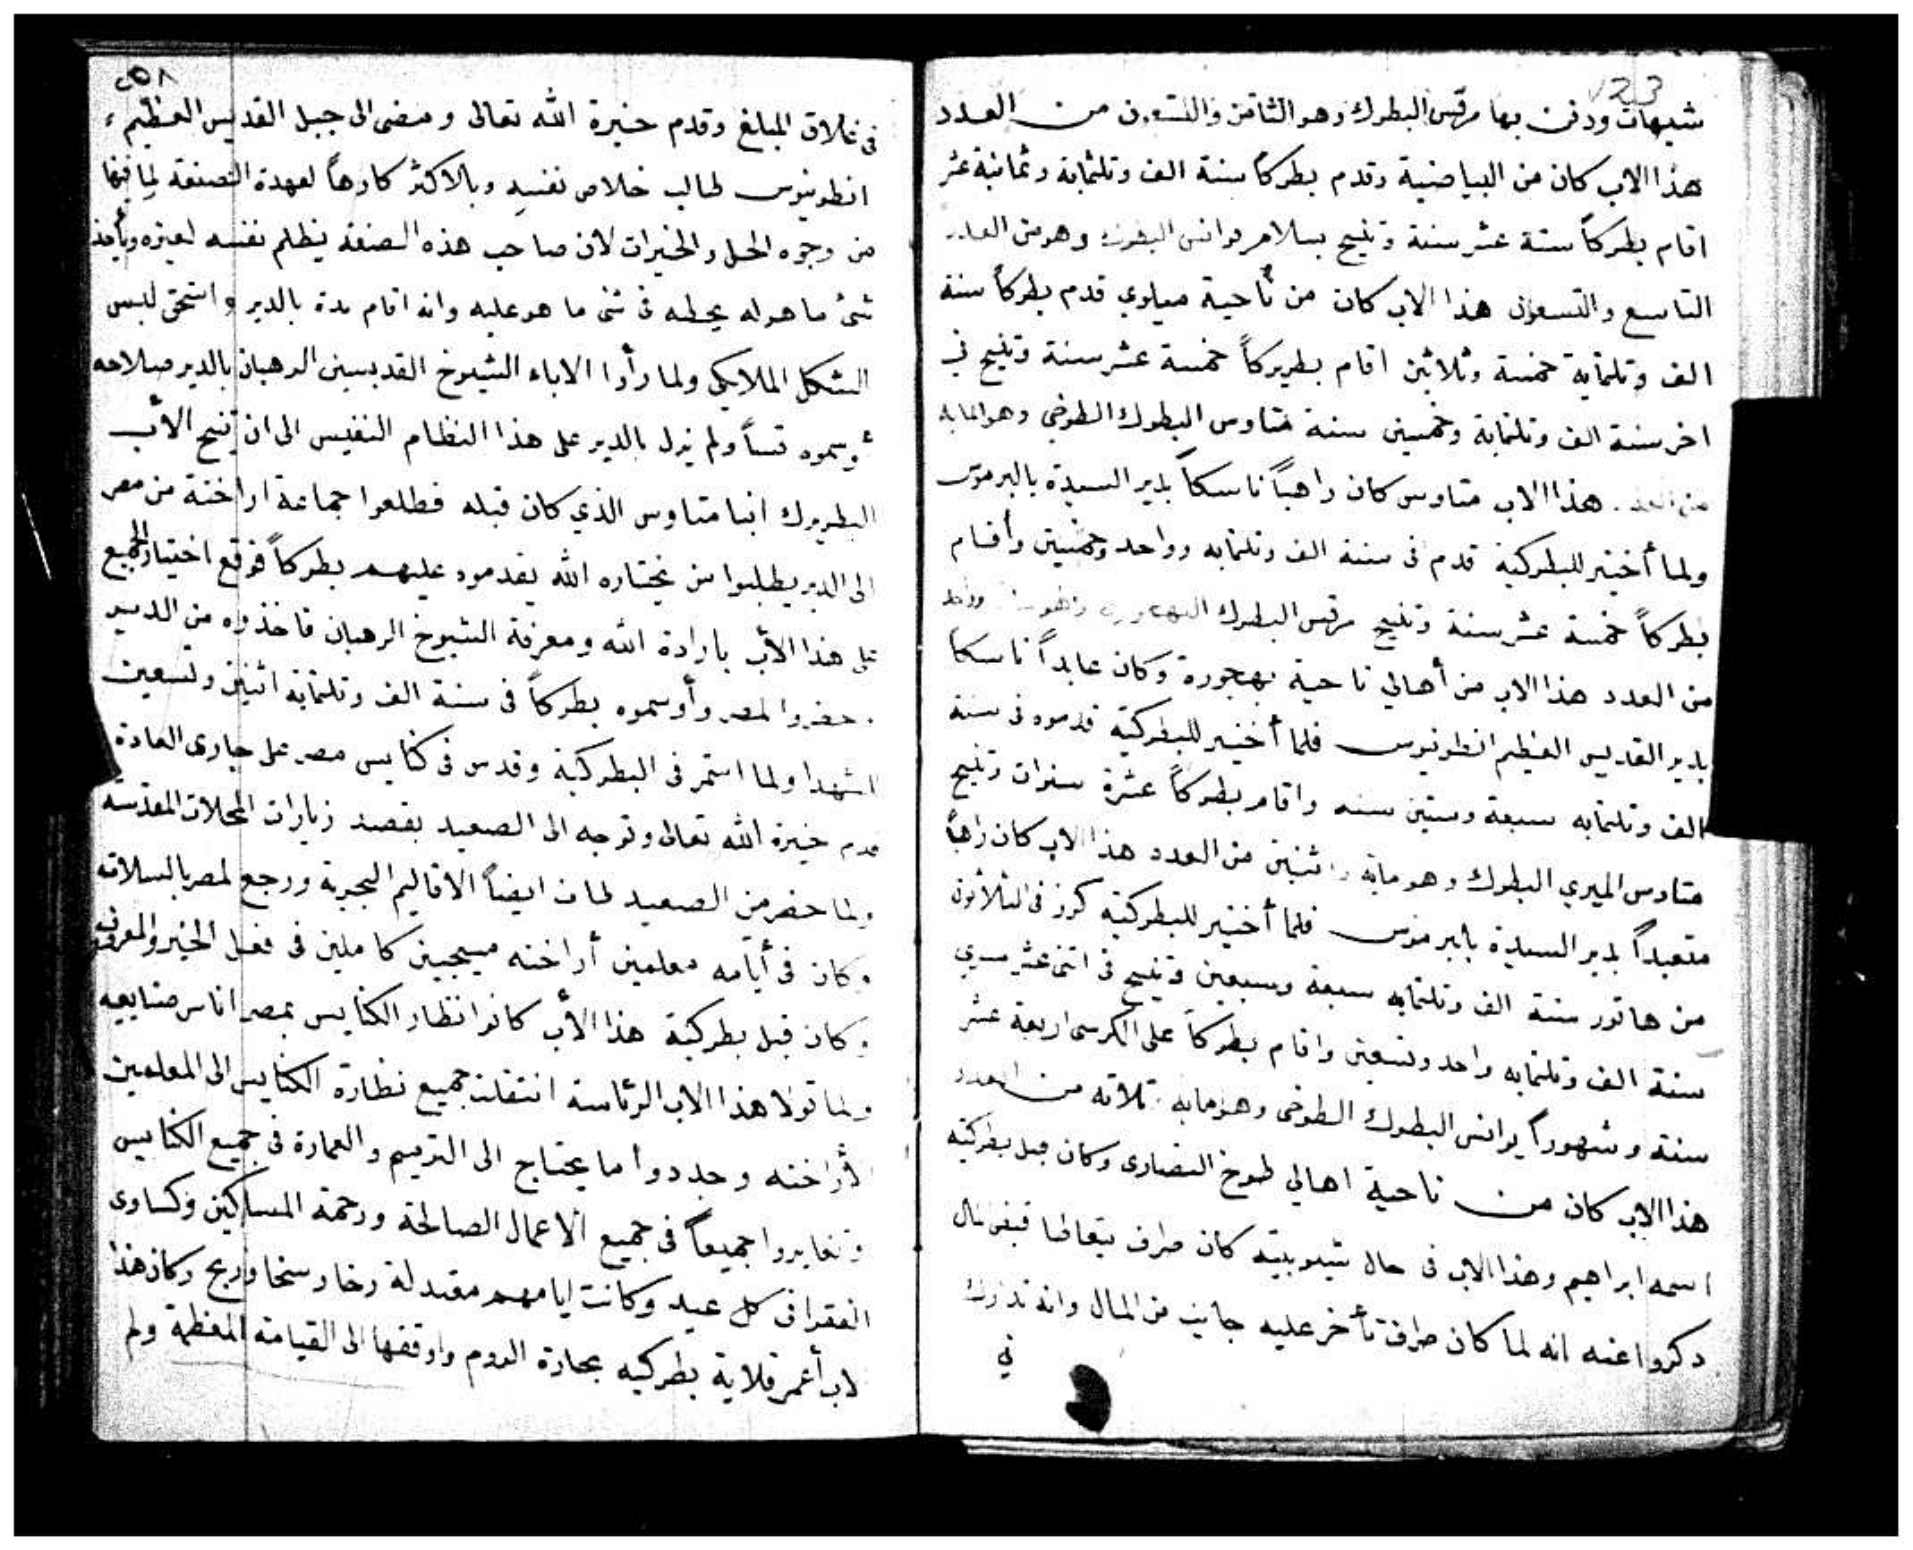 123
شيهات ودفن بها مرقس البطرك وهو الثامن والتسعون من العدد
هذا الاب كان من البياضية وقدم بطركاً سنة الف وتلثماية وثمانية عشر
اقام بطركاً ستة عشر سنة وتنيح بسلام يوانس البطرك وهو من العدد
التاسع والتسعون هذا الاب كان من ناحية ميلوي قدم بطركاً سنة
الف وتلتماية خمسة وثلاثين اقام بطريركاً خمسة عشر سنة وتنيح في
اخر سنة الف وتلتماية وخمسين سنة متاوس البطرك الطوخي وهو الماية
من العدد . هذا الاب متاوس كان راهباً ناسكاً بدير السيدة بالبرموس
ولما أختير للبطركية قدم فى سنة الف وتلتمايه وواحد وخمسين وأقام
بطركاً خمسة عشر سنة وتنيح مرقس البطرك البهجوري
من العدد هذا الاب من أهالي ناحية بهجورة وكان عابداً ناسكا
بدير القديس العظيم انطونيوس فلما أختير للبطركية قدموه فى سنة
الف وتلتمايه سبعة وستين سنه واقام بطركاً عشرة سنوات وتنيح
متاوس الميري البطرك وهو ماية واثنين من العدد هذا الاب كان راهباً
متعبداً بدير السيدة بابرموس فلما أختير للبطركية كرز فى الثلاثون
من هاتور سنة الف وتلتمايه سبعة وسبعين وتنيح فى اتنى عشر مسري
سنة الف وتلتمايه واحد وتسعين واقام بطركاً على الكرسى اربعة عشر
سنة وشهوراً يوانس البطرك الطوخى وهو مايه وتلاته من العدد
هذا الاب كان من ناحية اهالي طوخ النصارى وكان قبل بطركيته
اسمه ابراهيم وهذا الاب فى حال شبوبيته كان صراف يتعاطا قبض المال
دكروا عنه انه لما كان صراف تأخر عليه جانب من المال وانه تدارك
في
٢٥٨
فى غلاق المبلغ وقدم خيرة الله تعالى ومضى الى جبل القديس العظيم
انطونيوس طالب خلاص نفسه وبالاكثر كارهاً لعهدة الصنعة لما فيها
من وجوه الحل والخيرات لان صاحب هذه الصنعة يظلم نفسه لغيره ويأخذ
شئ ما هو له يحطه فى شئ ما هو عليه وانه اقام مدة بالدير واستحق لبس
الشكل الملايكي ولما رأوا الاباء الشيوخ القديسين الرهبان بالدير صلاحه
أوسموه قساً ولم يزل بالدير على هذا النظام النفيس الى ان تنيح الأب
البطريرك انبا متاوس الذي كان قبله فطلعوا جماعة اراخنة من مصر
الى الدير يطلبوا من يختاره الله يقدموه عليهم بطركاً فوقع اختيار الجميع
على هذا الأب بارادة الله ومعرفة الشيوخ الرهبان فاخذوه من الدير
وحضروا لمصر وأوسموه بطركاً فى سنة الف وتلتماية اثنين وتسعين
الشهدا ولما استمر فى البطركية وقدس فى كنايس مصر على جاري العادة
قدم خيرة الله تعالى وتوجه الى الصعيد بقصد زيارات المحلات المقدسه
ولما حضر من الصعيد طاف ايضاً الاقاليم البحرية ورجع لمصر بالسلامه
وكان فى أيامه معلمين أراخنه مسيحيين كاملين فى فعل الخير والمعروف
وكان قبل بطركية هذا الأب كانوا نظار الكنايس بمصر اناس صنايعيه
ولما تولا هذا الاب الرئاسة انتقلت جميع نظارة الكنايس الى المعلمين
الأراخنه وجددوا ما يحتاج الى الترميم والعمارة فى جميع الكنايس
وتغايروا جميعاً فى جميع الاعمال الصالحة ورحمة المساكين وكساوى
الفقرا فى كل عيد وكانت ايامهم معتدلة رخا وسخا وربح وكان هذا
لاب أعمر قلاية بطركيه بحارة الروم واوقفها الى القيامة المعظمة ولم